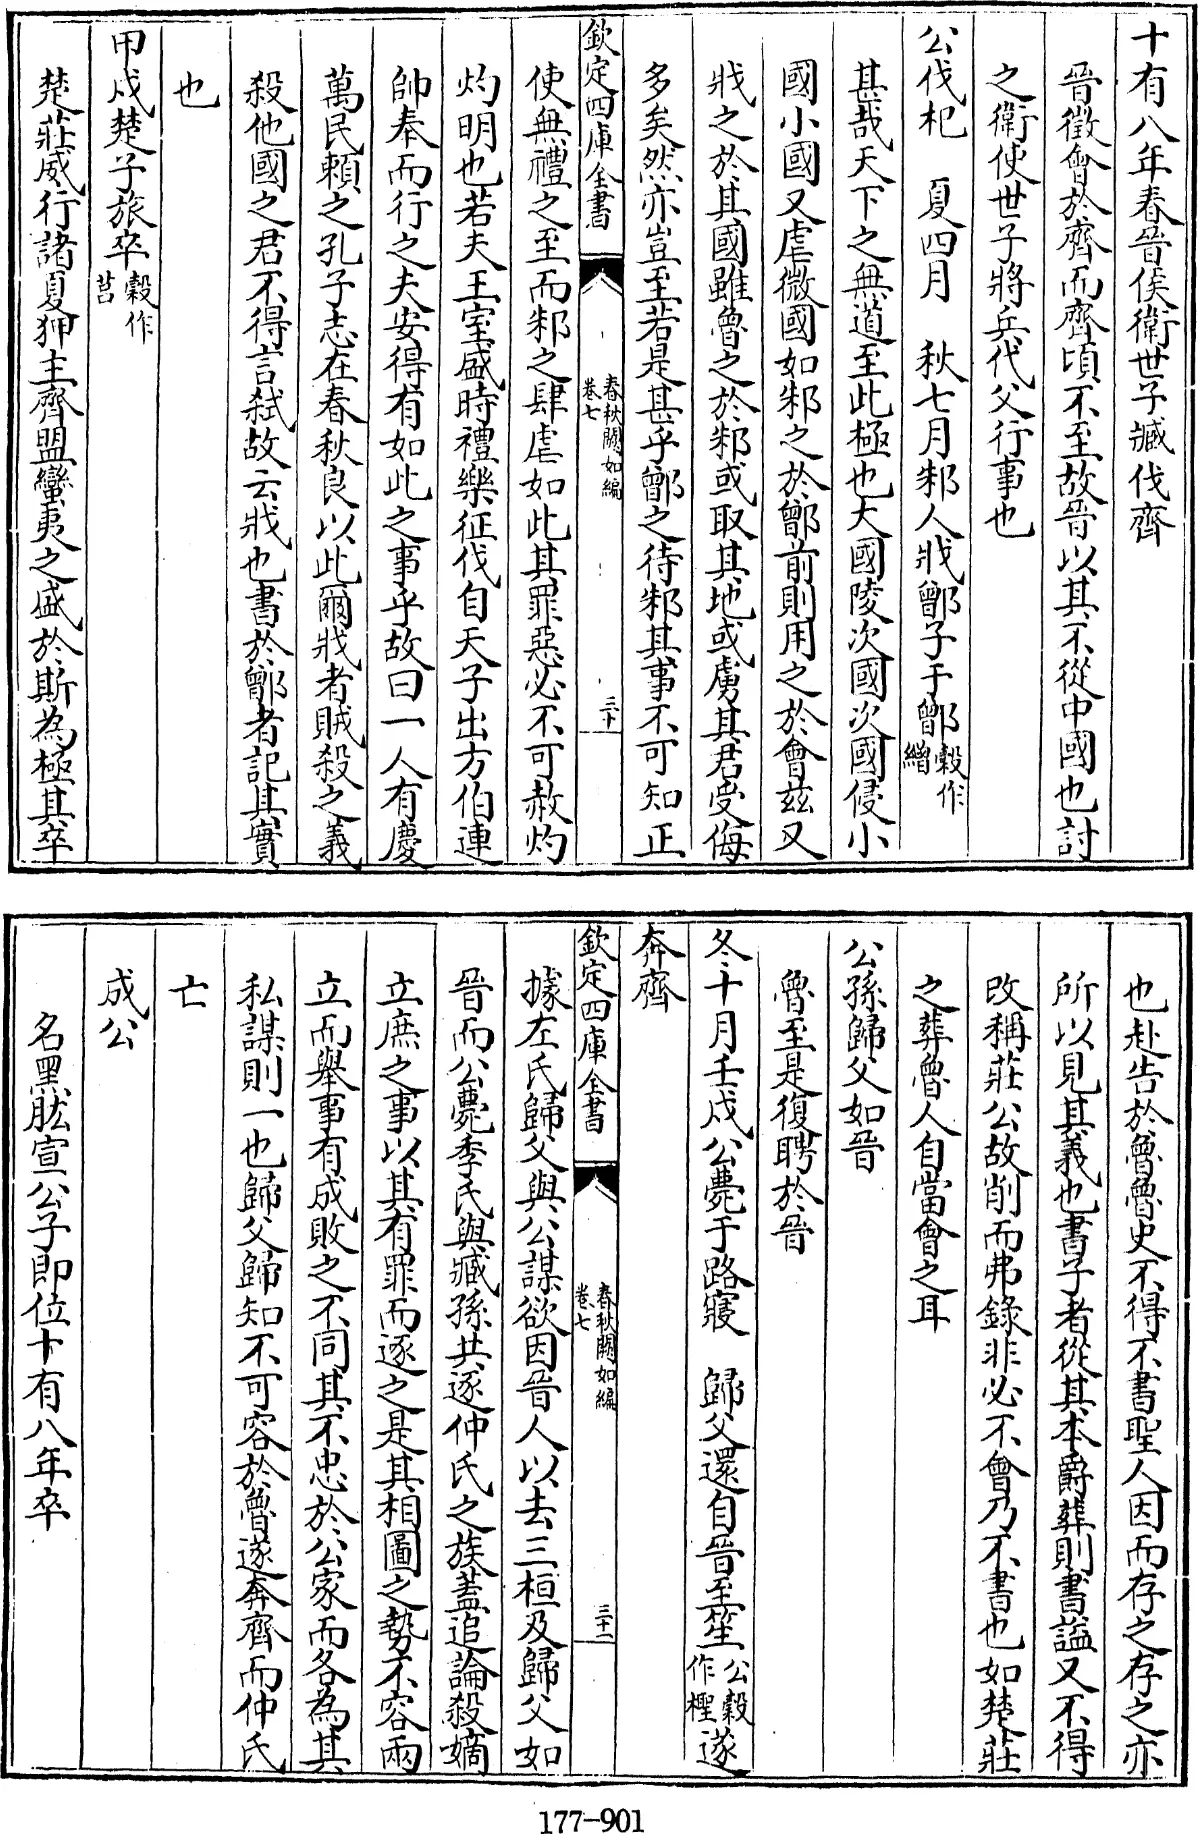 十有八年春晉侯衛世子臧伐齊
晉徵會於齊而齊頃不至故晉以其不從中國也討
之衛使世子將兵代父行事也
公伐杞　夏四月　秋七月邾人戕鄫子于鄫穀作繒
甚哉天下之無道至此極也大國陵次國次國侵小
國小國又虐微國如邾之於鄫前則用之於會茲又
戕之於其國雖魯之於邾或取其地或虜其君受侮
多矣然亦豈至若是甚乎鄫之待邾其事不可知正
欽定四庫全書　春秋闕如編卷七　三十
使無禮之至而邾之肆虐如此其罪惡必不可赦灼
灼明也若夫王室盛時禮樂征伐自天子出方伯連
帥奉而行之夫安得有如此之事乎故曰一人有慶
萬民賴之孔子志在春秋良以此爾戕者賊殺之義
殺他國之君不得言弒故云戕也書於鄫者記其實
也
甲戌楚子旅卒穀作莒
楚莊威行諸夏狎主齊盟蠻夷之盛於斯為極其卒
也赴告於魯魯史不得不書聖人因而存之存之亦
所以見其義也書子者從其本爵葬則書謚又不得
改稱莊公故削而弗錄非必不會乃不書也如楚莊
之葬魯人自當會之耳
公孫歸父如晉
魯至是復聘於晉
冬十月壬戌公薨于路寢　歸父還自晉至笙公穀作檉遂
奔齊
欽定四庫全書　春秋闕如編卷七　三十一
據左氏歸父與公謀欲因晉人以去三桓及歸父如
晉而公薨季氏與臧孫共逐仲氏之族蓋追論殺嫡
立庶之事以其有罪而逐之是其相圖之勢不容兩
立而舉事有成敗之不同其不忠於公家而各為其
私謀則一也歸父歸知不可容於魯遂奔齊而仲氏
亡
成公
名黑肱宣公子即位十有八年卒
177-901